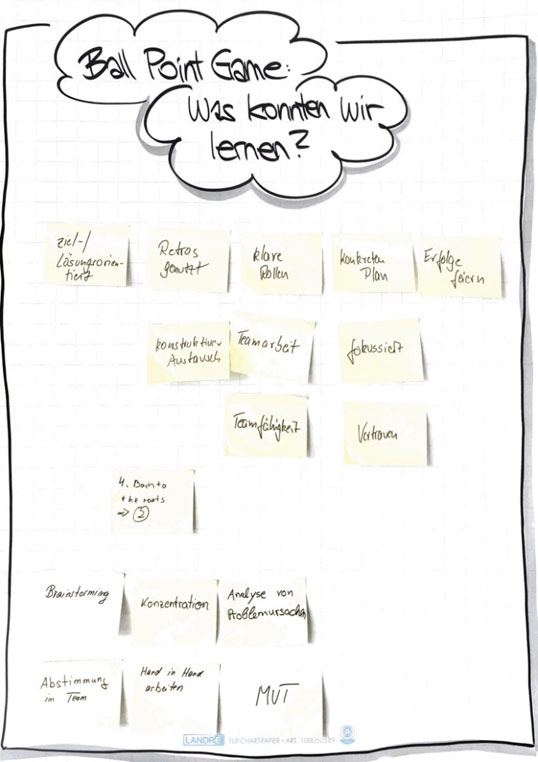 Ball Point Game:
Was konnten wir
lernen?
Ziel-/
Lösungsorien-
tiert
Retros
genutzt
klare
Rollen
konkreten
Plan
Erfolge
feiern
konstruktiver
Austausch
Teamarbeit
fokussiert
Teamfähigkeit
Vertrauen
4.
the roots
⇒ 2
Brainstorming
Konzentration
Analyse von
Problemursachen
Abstimmung
im Team
Hand in Hand
arbeiten
MUT
LANDRÉ FLIPCHARTPAPIER • ART.